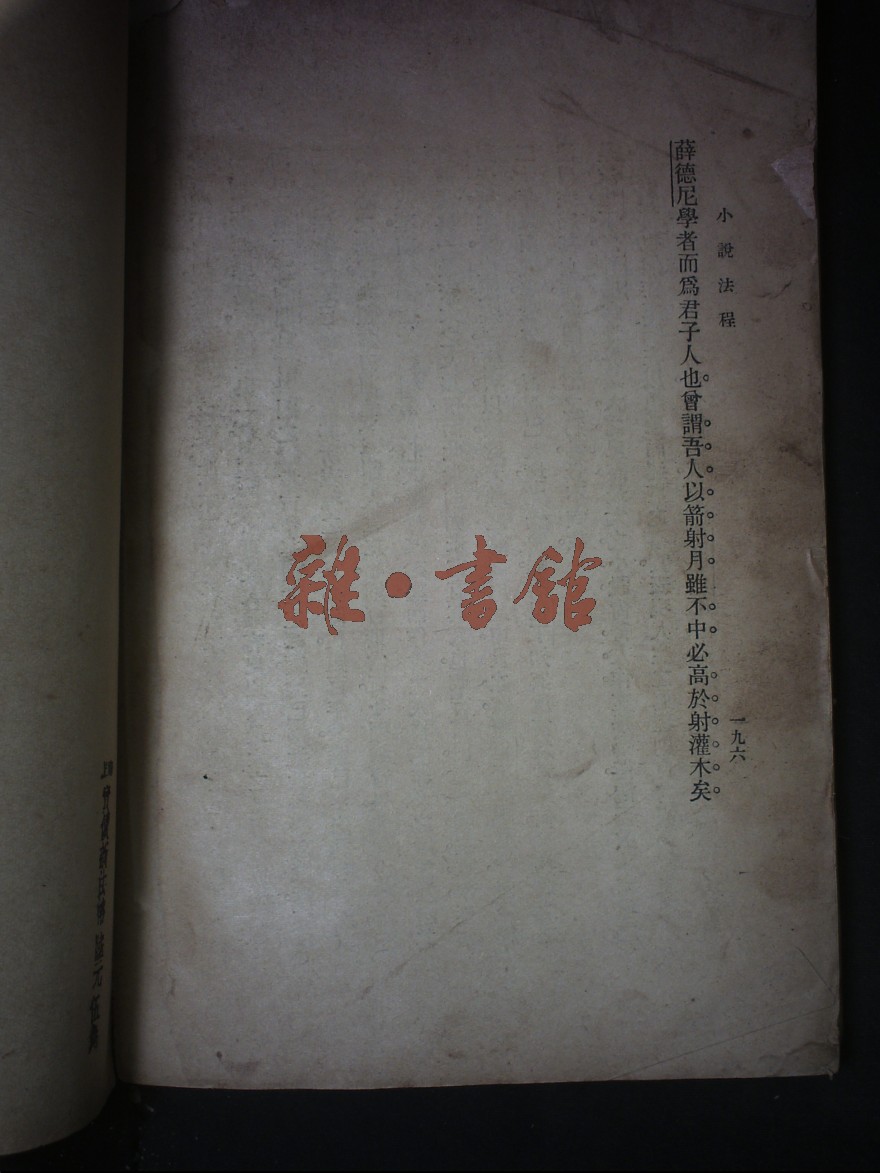 小說法程
一九六
薛德尼學者而爲君子人也。曾謂吾人以箭射月雖不中必高於射灌木矣。
雜·書館